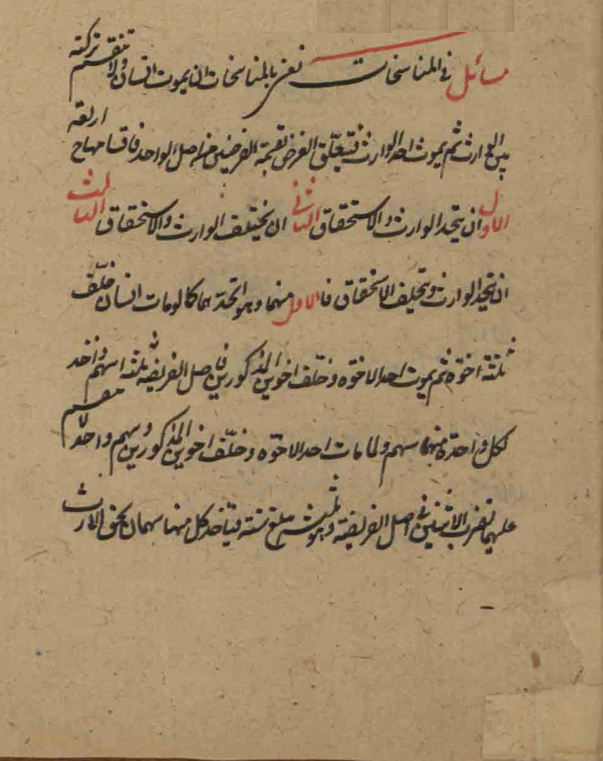 مسائل في المناسخات نعني بالمناسخات ان يموت انسان ولا تنقسم تركته
بين الوارث ثم يموت احد الوارث فيتعلق الغرض بقسمة الفريضتين من اصل الواحد فاقسامها ح اربعة
الاول ان يتحد الوارث والاستحقاق الثاني ان يختلف الوارث والاستحقاق الثالث
ان يتحد الوارث ويختلف الاستحقاق فالاول منهما وهو اتحادهما كما لو مات انسان خلّف
ثلثة اخوة ثم يموت احد الاخوه وخلّف اخوين المذكورين فاصل الفريضة ثلثة اسهم واحد
لكل واحدة منها سهم ولما مات احد الاخوه وخلّف اخوين المذكورين وسهم واحد لا ينقسم
عليهما تضرب الاثنين في اصل الفريضة وهو ثلثة ستة فيأخذ كل منهما سهمان بحق الارث